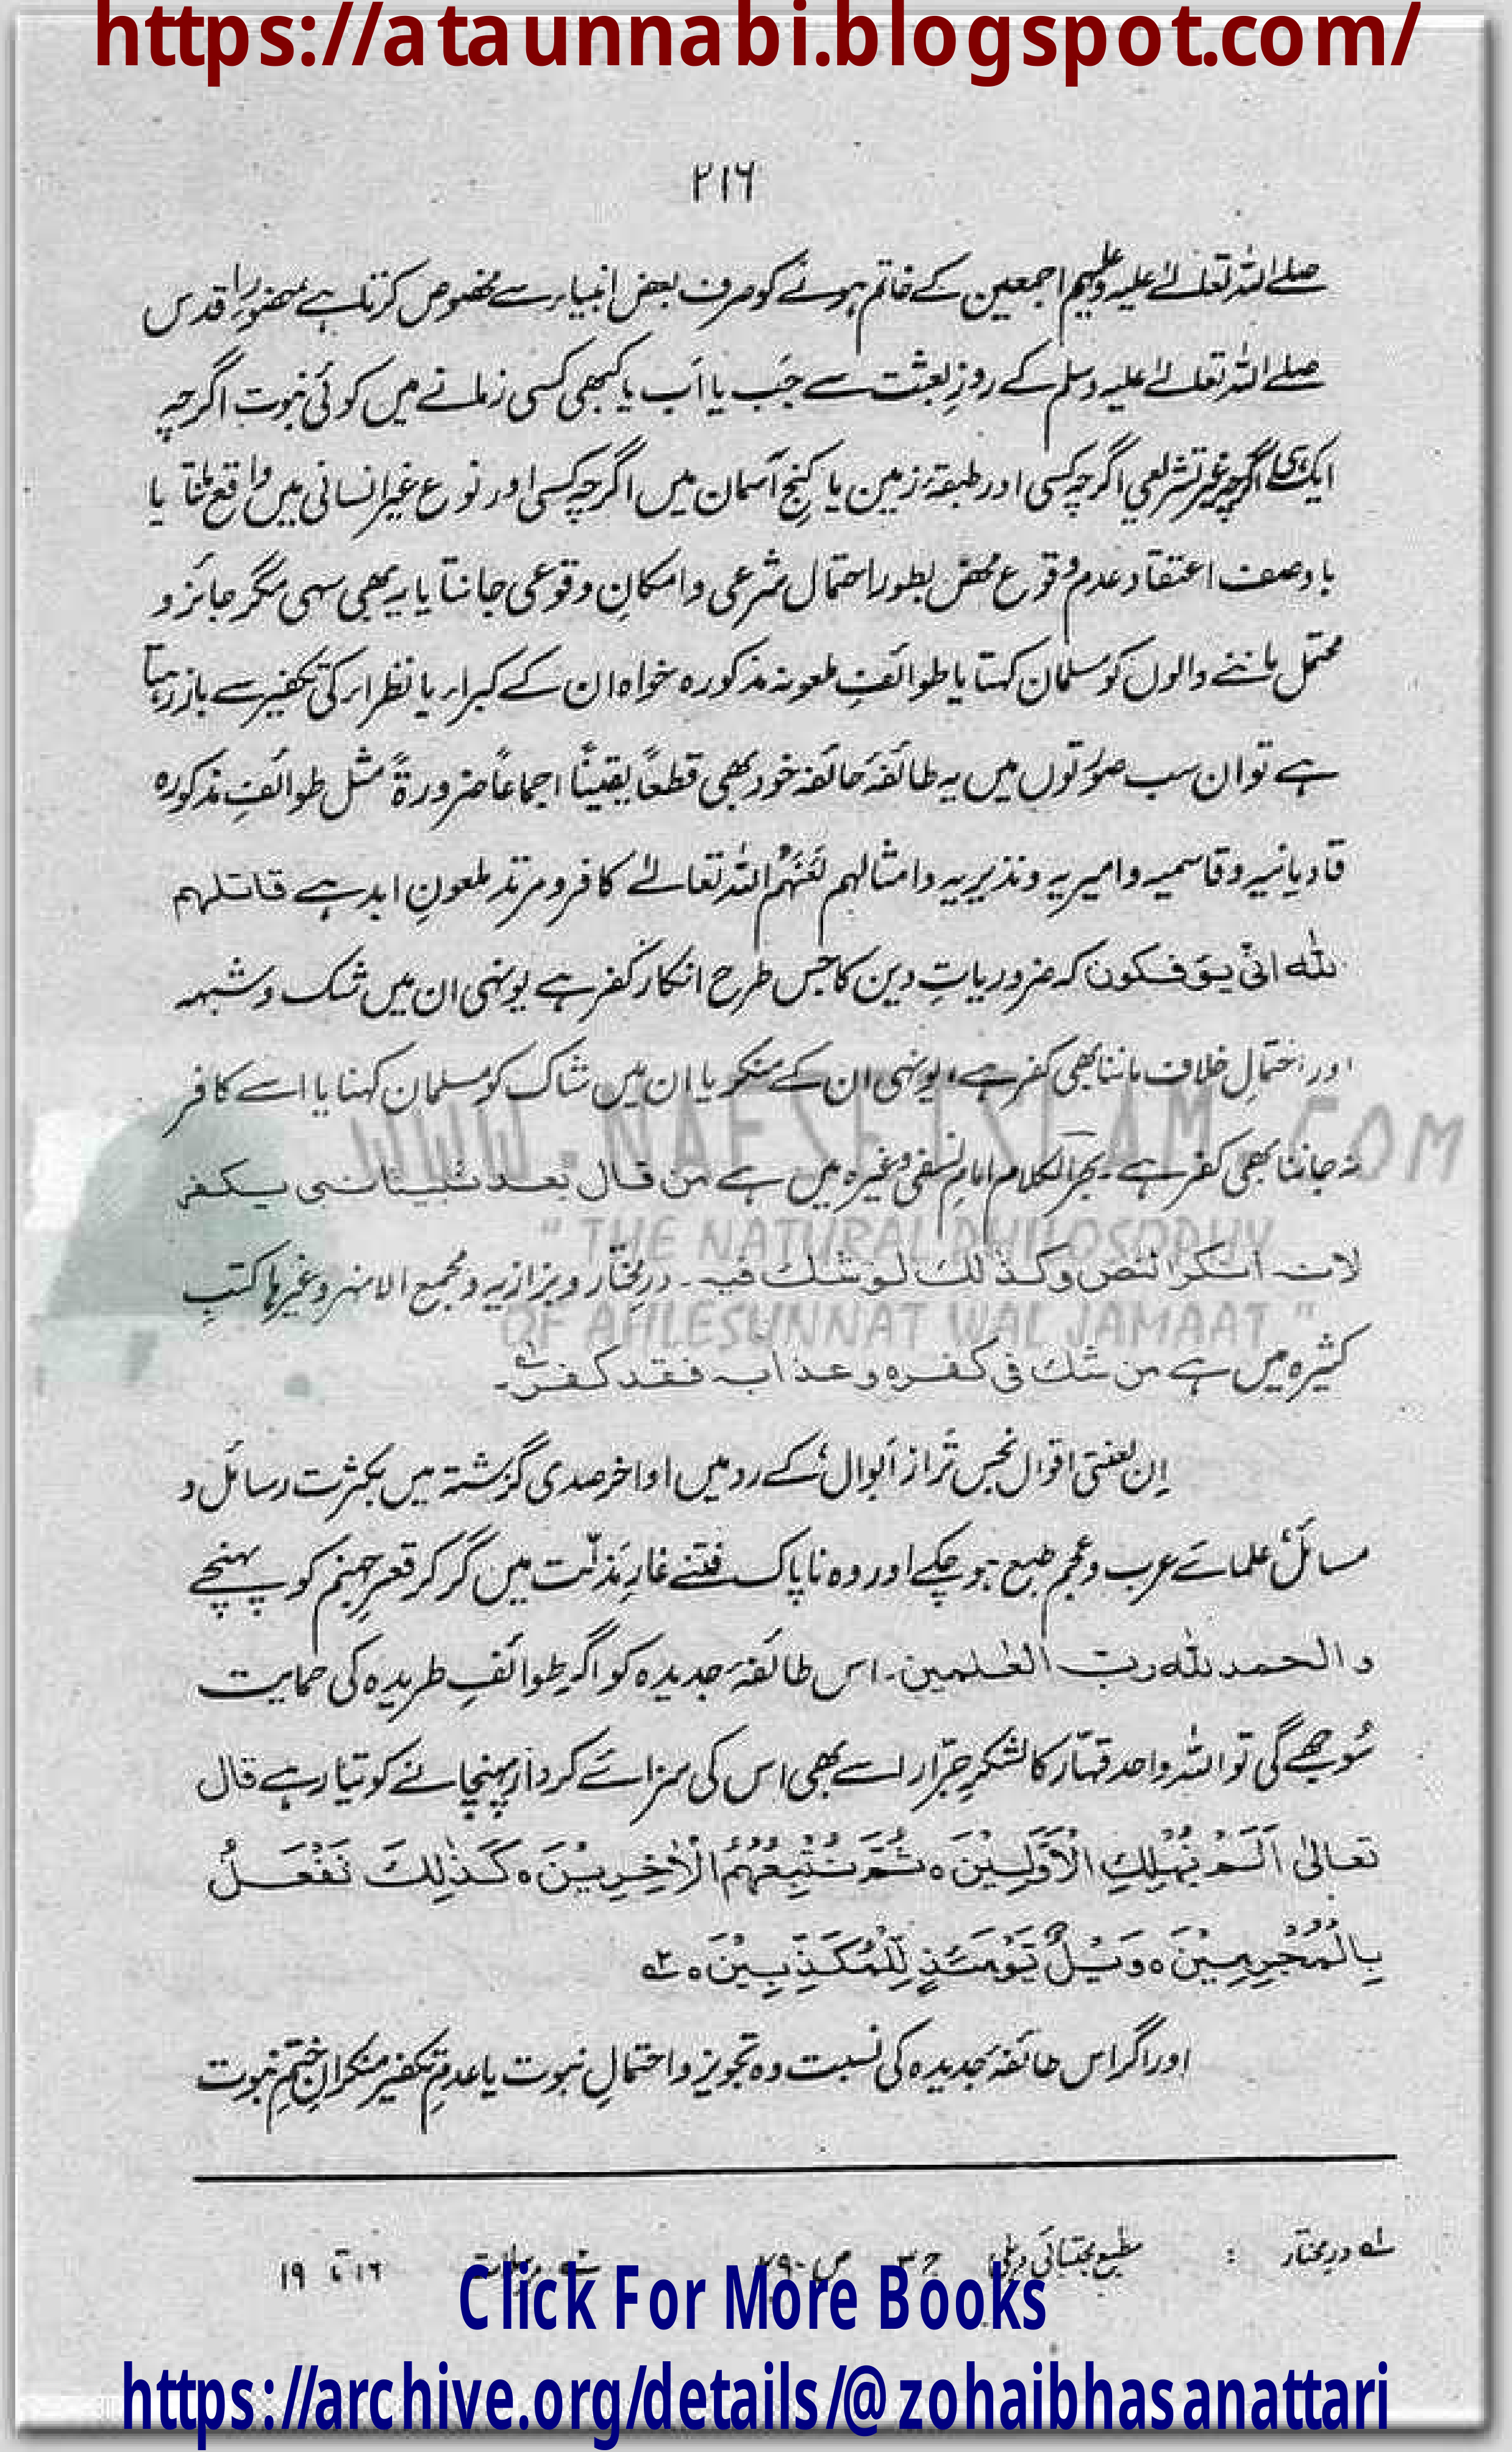 https://ataunnabi.blogspot.com/
۲۱۶
صلے اللہ تعالےٰ علیہ وعلیہم اجمعین کے خاتم ہونے کو صرف بعض انبیاء سے مخصوص کرتا ہے حضورِ اقدس
صلے اللہ تعالےٰ علیہ وسلم کے روزِ بعثت سے جَب یا اَب یا کبھی کسی زمانے میں کوئی نبوت اگرچہ
ایک ہی اگرچہ غیر تشریعی اگرچہ کسی اور طبقۂ زمین یا کنجِ آسمان میں اگرچہ کسی اور نوع غیر انسانی میں واقع مانتا یا
باوصف اعتقاد عدمِ وقوع محض بطور احتمال شرعی و امکانِ وقوعی جانتا یا یہ بھی سہی مگر جائز و
محتمل ماننے والوں کو مسلمان کہتا یا طوائفِ ملعونہ مذکورہ خواہ ان کے کبراء یا نظراء کی تکفیر سے باز رہتا
ہے تو ان سب صورتوں میں یہ طائفۂ حائفہ خود بھی قطعاً یقیناً اجماعاً ضرورۃً مثل طوائفِ مذکورہ
قادیانیہ و قاسمیہ و امیریہ و نذیریہ و امثالہم لَعَنَہُمُ اللہ تعالےٰ کافر و مرتد ملعونِ ابد ہے قاتلہم
للہ انیٰ یؤفکون کہ ضروریاتِ دین کا جس طرح انکار کفر ہے یونہی ان میں شک و شبہہ
اور احتمالِ خلاف ماننا بھی کفر ہے، یونہی ان کے منکر یا ان میں شاک کو مسلمان کہنا یا اسے کافر
نہ جاننا بھی کفر ہے۔ بحر الکلام امام نسفی وغیرہ میں ہے من قال بعد نبینا نبی یکفر
WWW.NAFSEISLAM.COM
لانہ انکر النص وکذلک لو شک فیہ۔ درمختار و بزازیہ و مجمع الانہر وغیرہا کتبِ
"THE NATURAL PHILOSOPHY
کثیرہ میں ہے من شک فی کفرہ وعذابہ فقد کفر۱ھ۔
OF AHLESUNNAT WAL JAMAAT"
اِن لعنتی اقوال نجس تَر از اَبوال، کے رد میں اواخر صدی گزشتہ میں بکثرت رسائل و
مسائل، علمائے عرب و عجم طبع ہو چکے اور وہ ناپاک فتنے غارِ مَذلّت میں گر کر قعرِ جہنم کو پہنچے
والحمد للہ رب العٰلمین۔ اس طائفۂ جدیدہ کو اگر طوائفِ طریدہ کی حمایت
سُوجھے گی تو اللہ واحد قہّار کا لشکرِ جرّار اسے بھی اس کی سزائے کردار پہنچانے کو تیار ہے قال
تعالیٰ اَلَمْ نُہْلِکِ الْاَوَّلِیْنَ ہ ثُمَّ نُتْبِعُہُمُ الْاٰخِرِیْنَ ہ کَذٰلِکَ نَفْعَلُ
بِالْمُجْرِمِیْنَ ہ وَیْلٌ یَّوْمَئِذٍ لِّلْمُکَذِّبِیْنَ ہ ۲ھ
اور اگر اس طائفۂ جدیدہ کی نسبت وہ تجویز و احتمالِ نبوت یا عدمِ تکفیر منکرانِ ختمِ نبوت
۱ھ درمختار : مطبع مجتبائی دہلی ج ۳ ص ۲۹۰ ۱۶ تا ۱۹
Click For More Books
https://archive.org/details/@zohaibhasanattari